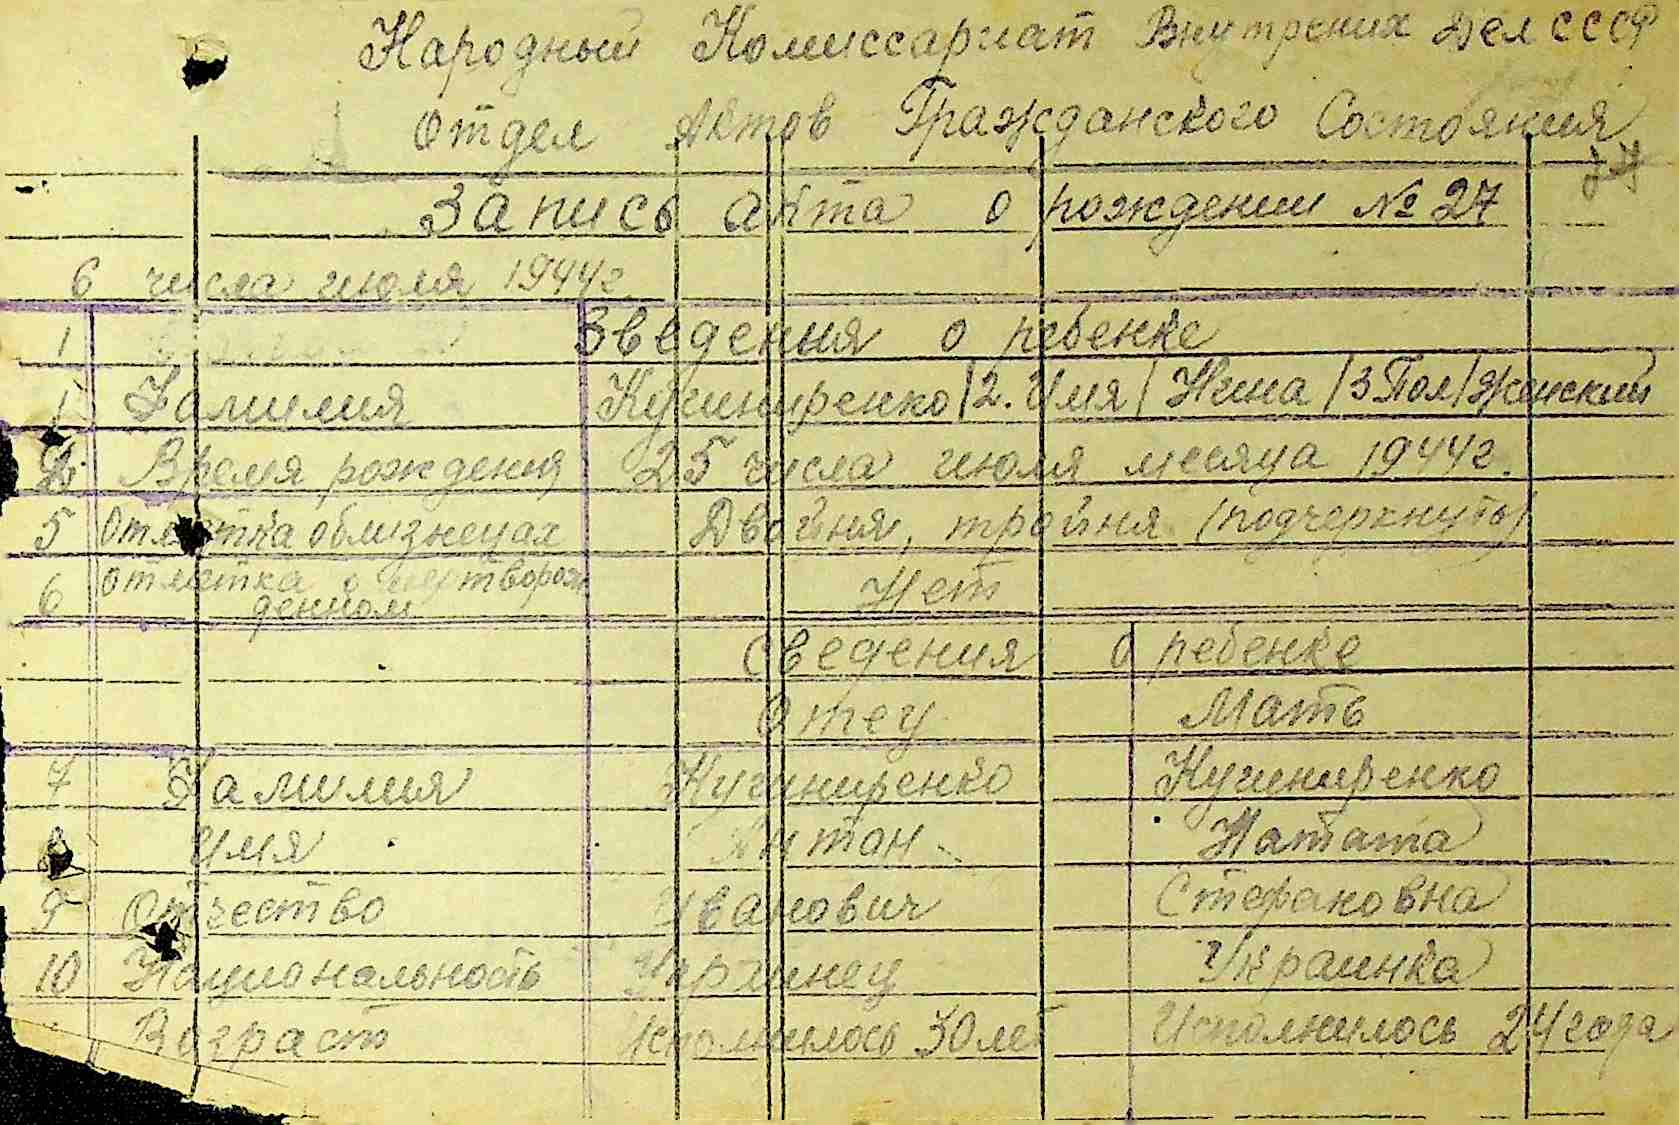 Народный Комиссариат Внутрених Дел СССР
Отдел Актов Гражданского Состояния
Запись акта о рождении № 27
6 числа июля 1944г.
1 Зведения о ребенке
1 Фамилия Кушниренко /2. Имя/ Нина /3 Пол/ женский
Время рождения 25 числа июля месяца 1944г.
5 Отметка облизнецах Двойня, тройня (подчеркнуть)
6 отметка о мертворож
денном Нет
Сведения о ребенке
Отец Мать
7 Фамилия Кушниренко Кушниренко
8 Имя Антон Натата
9 Отчество Иванович Стефановна
10 Национальность Украинец Украинка
Возраст Исполнилось 30 лет Исполнилось 24 года